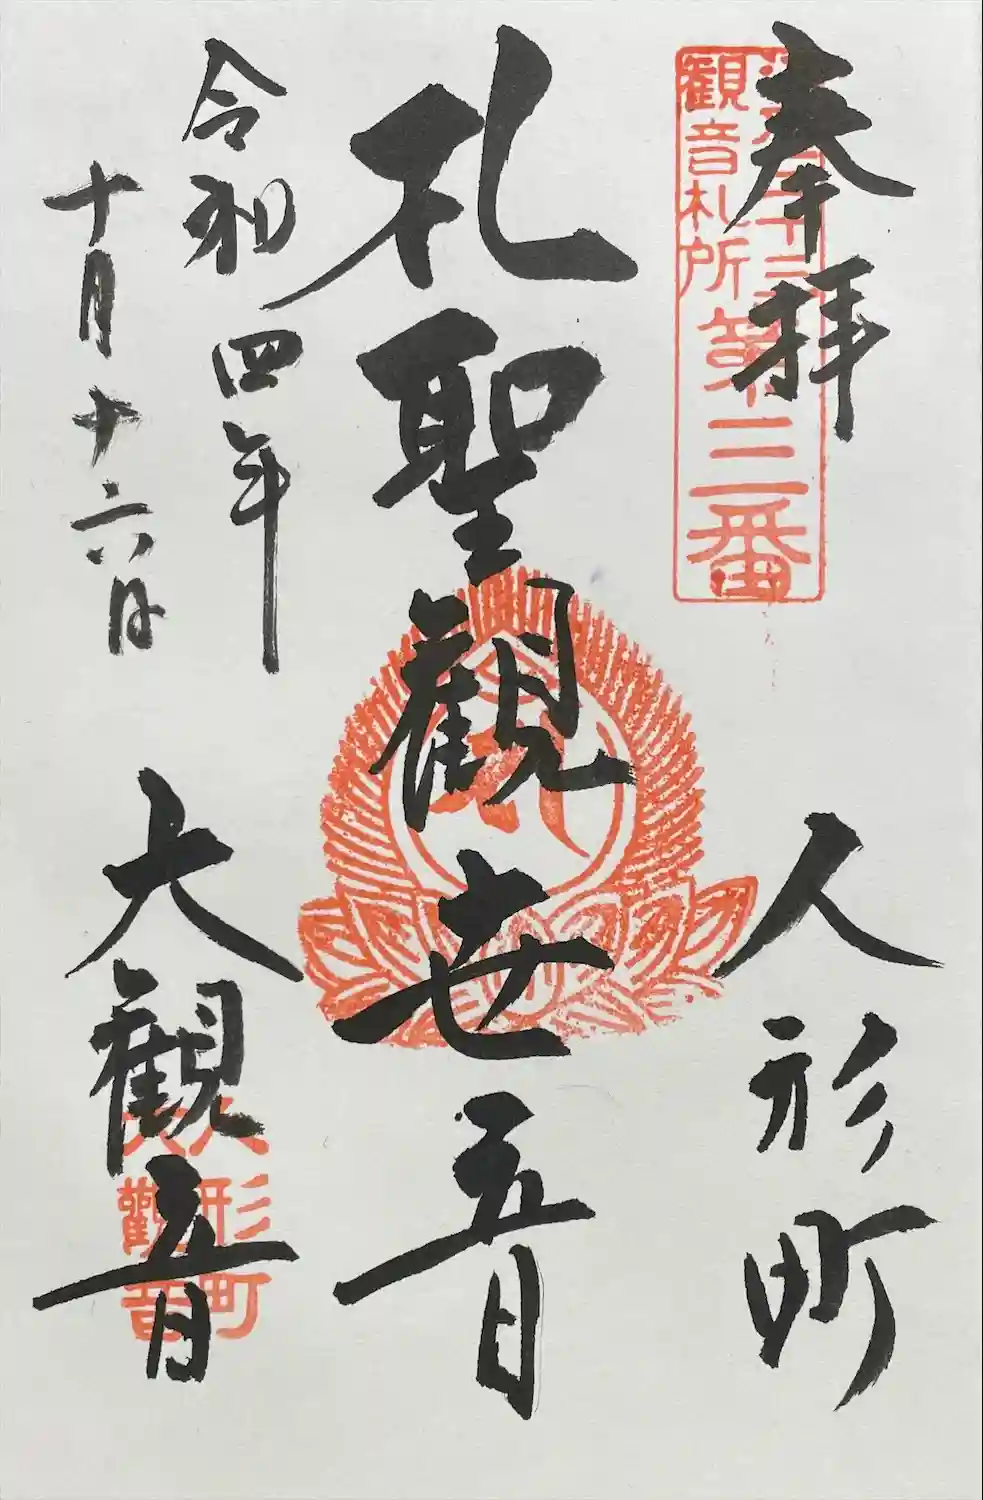 奉拝
江戸三十三
観音札所
第三番
人形町
礼聖観世音
令和四年
十月十六日
大観音
人形町
大觀音